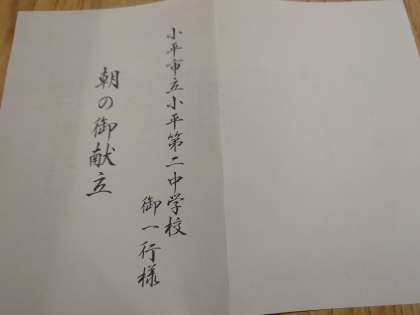 小平市立小平第二中学校
御一行様
朝の御献立